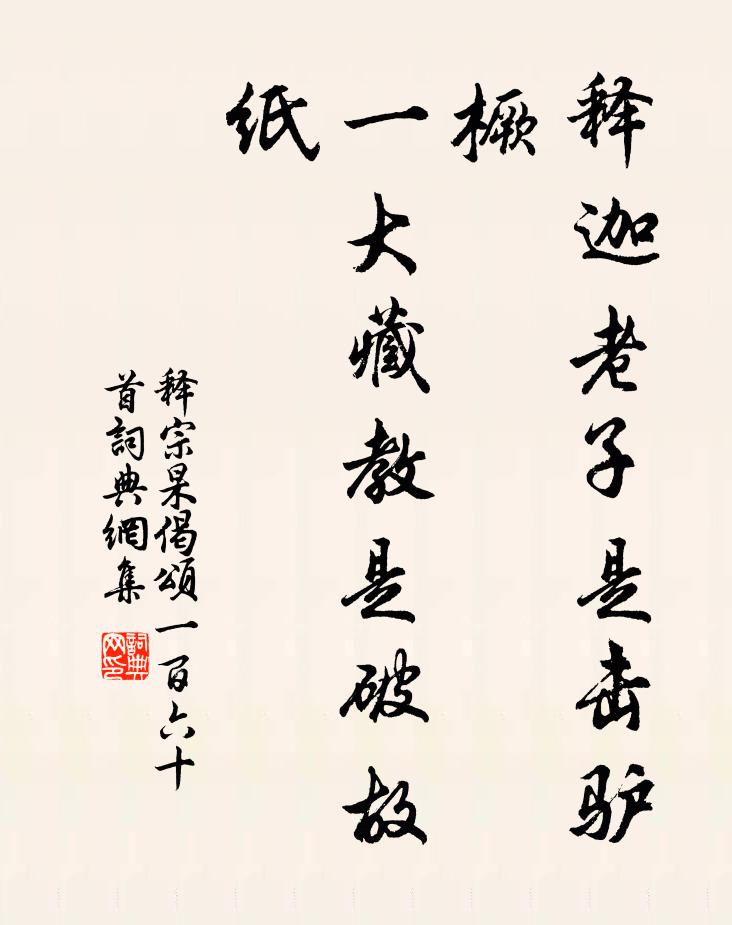 释迦老子是击驴
橛
一大藏教是破故
纸
释宗杲偈頌一百六十
首詞典網集
詞典网印